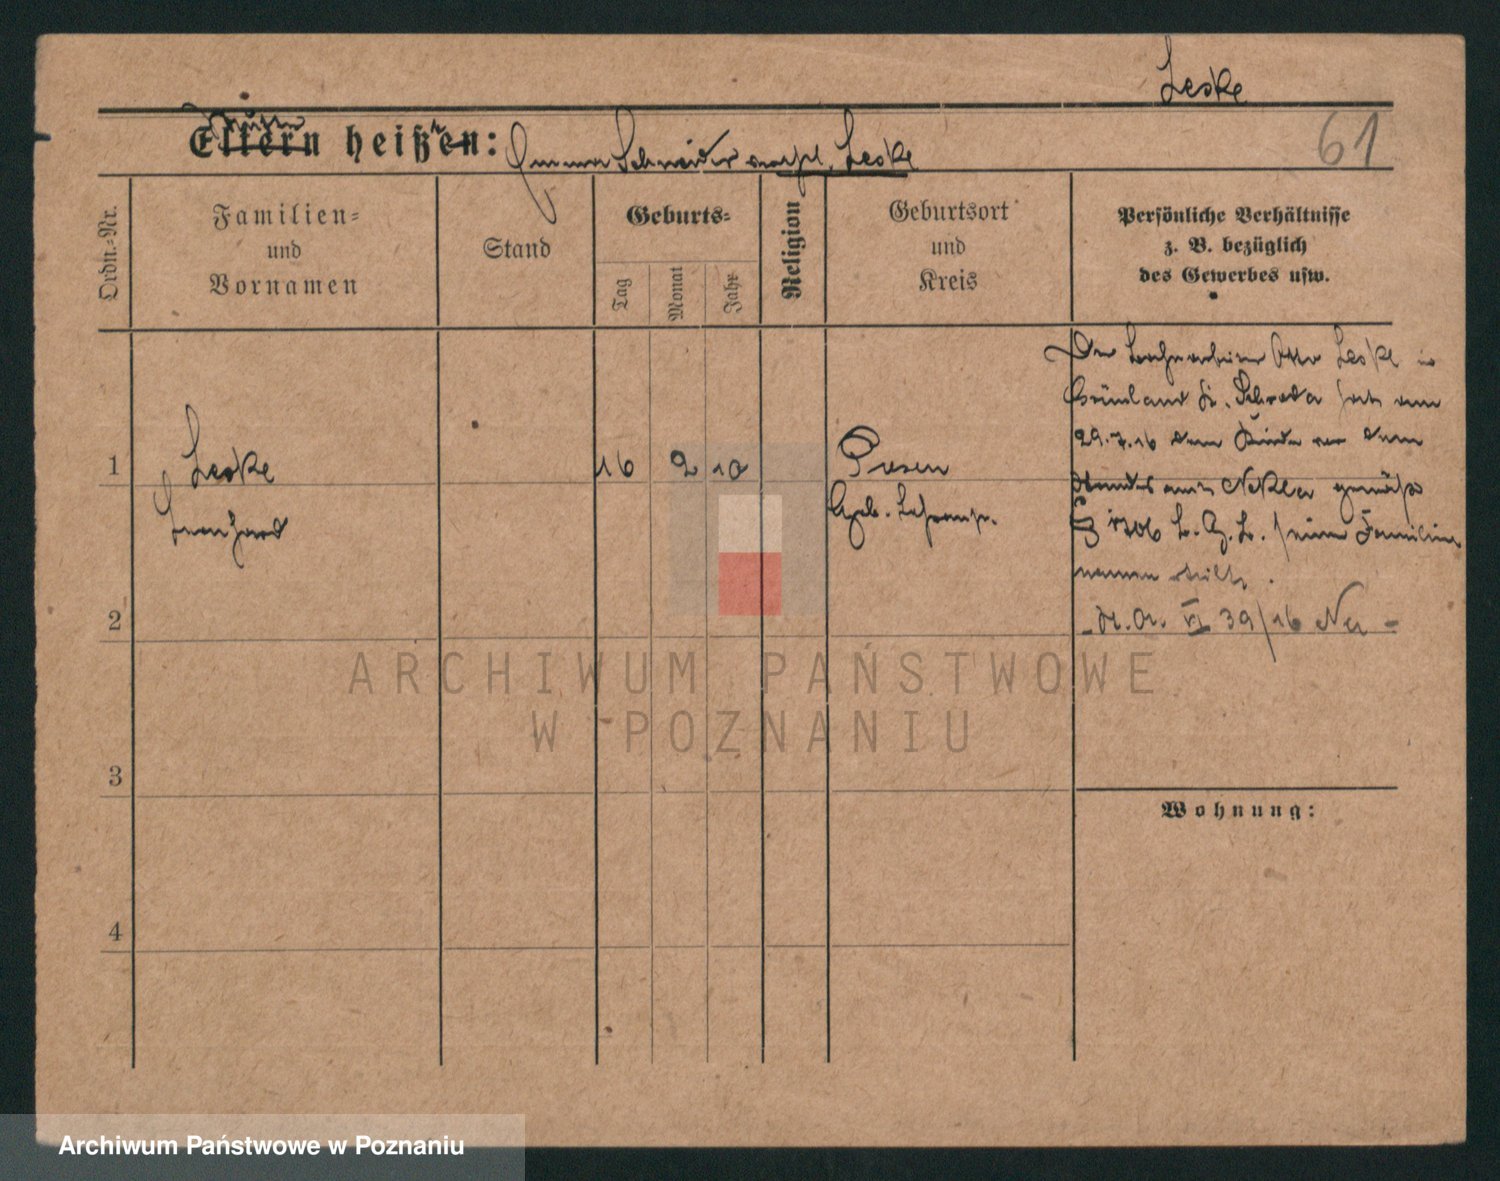 Leske
61
Mutter
Eltern heißen: Emma Schneider verehl. Leske
Ordn.-Nr.
Familien-
und
Vornamen
Stand
Geburts-
Tag
Monat
Jahr
Religion
Geburtsort
und
Kreis
Persönliche Verhältnisse
z. B. bezüglich
des Gewerbes usw.
1
Leske
16 2 10
Posen
Geb.
Der Otto Leske in
Grünland Kr. Schroda hat am
29.7.16 dem Kinde vor dem
Standesamt Nekla gemäß
§ 1706 B. G. B. seinen Familien
namen erteilt.
- St. A. VI 39/16 Ne -
2
3
4
Wohnung:
ARCHIWUM PAŃSTWOWE
W POZNANIU
Archiwum Państwowe w Poznaniu